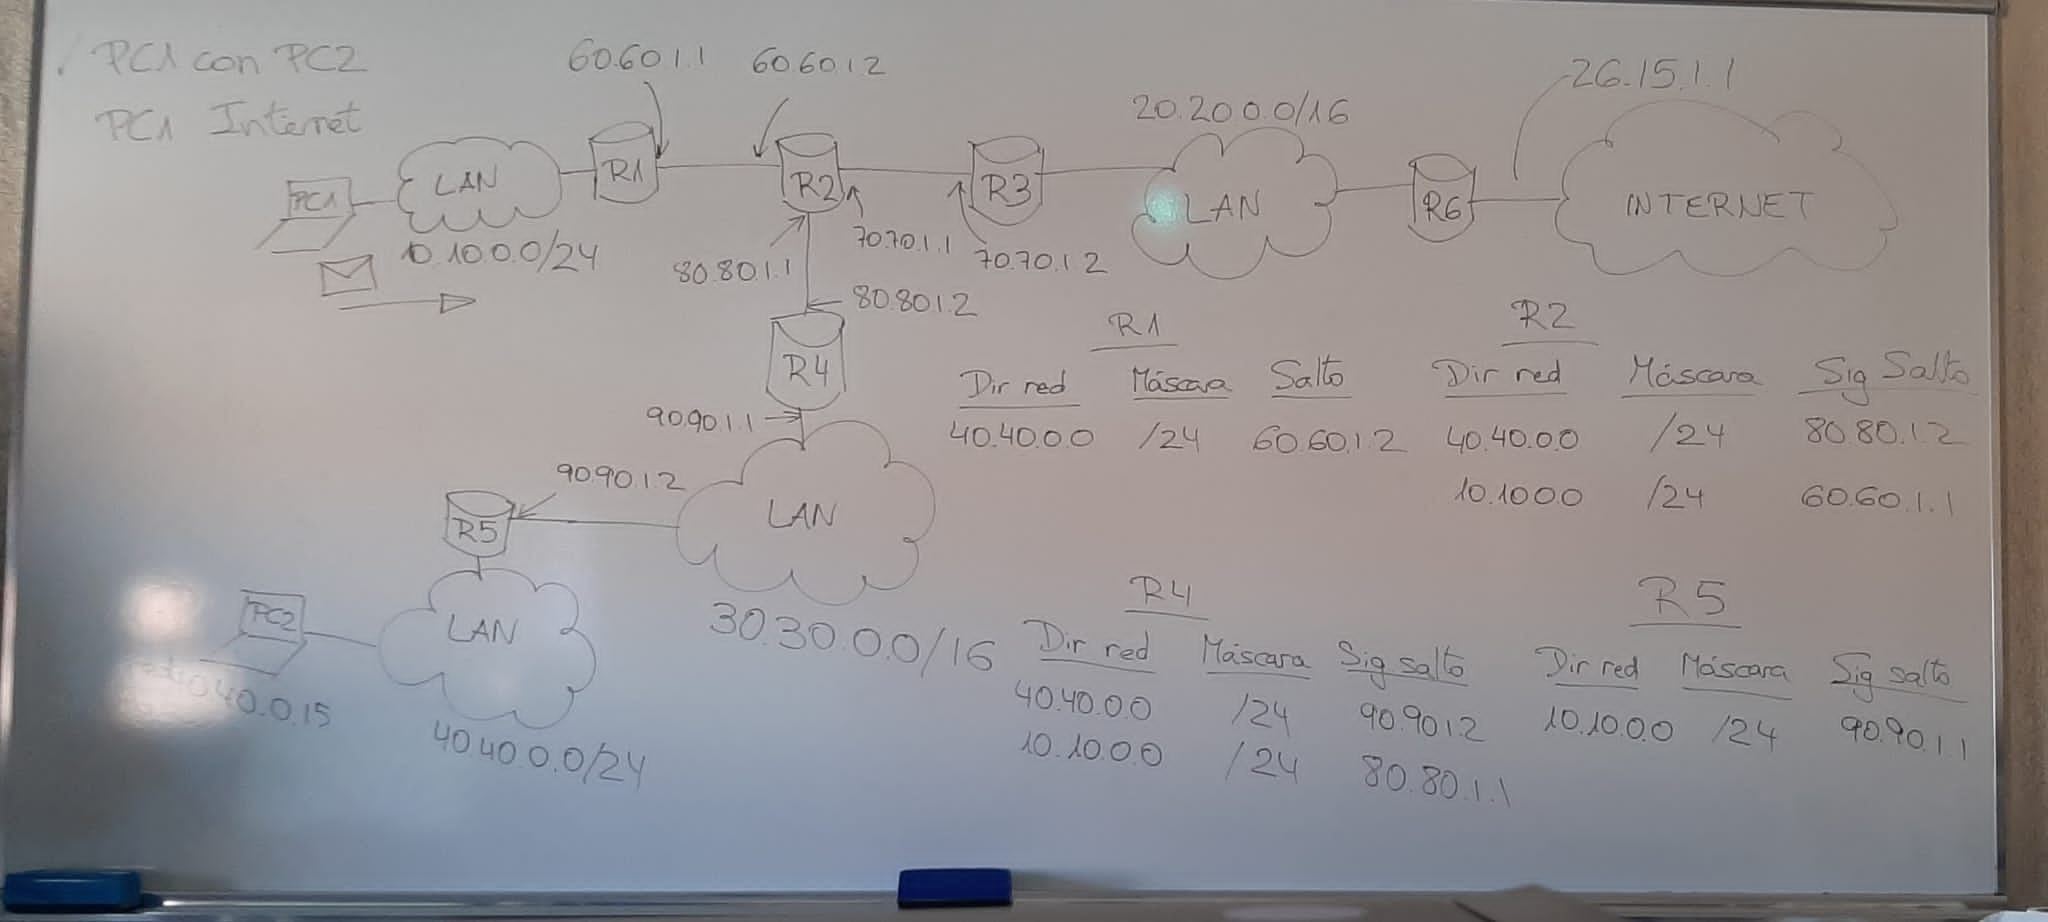 PC1 con PC2
PC1 Internet
60.60.1.1
60.60.1.2
20.20.0.0/16
26.15.1.1
PC1
LAN
R1
R2
R3
LAN
R6
INTERNET
10.10.0.0/24
80.80.1.1
70.70.1.1
70.70.1.2
80.80.1.2
R4
90.90.1.1
90.90.1.2
R5
LAN
30.30.0.0/16
PC2
LAN
40.0.15
40.40.0.0/24
R1
Dir red Máscara Salto
40.40.0.0 /24 60.60.1.2
R2
Dir red Máscara Sig Salto
40.40.0.0 /24 80.80.1.2
10.10.0.0 /24 60.60.1.1
R4
Dir red Máscara Sig salto
40.40.0.0 /24 90.90.1.2
10.10.0.0 /24 80.80.1.1
R5
Dir red Máscara Sig salto
10.10.0.0 /24 90.90.1.1